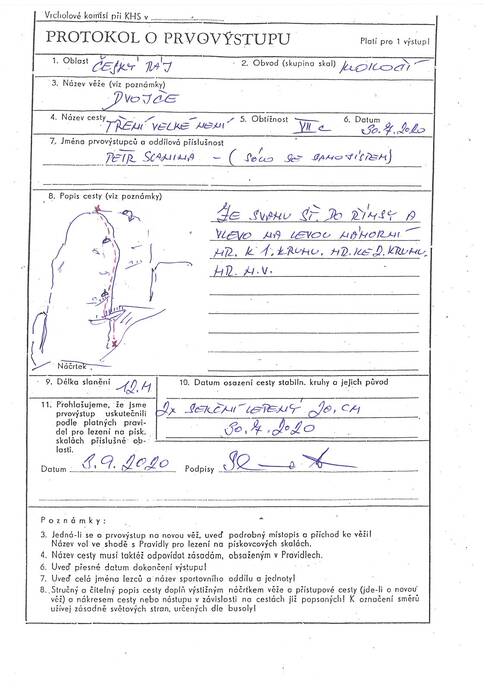 Vrcholové komisi při KHS v
PROTOKOL O PRVOVÝSTUPU Platí pro 1 výstup!
1. Oblast ČESKÝ RÁJ 2. Obvod (skupina skal)
3. Název věže (viz poznámky)
DVOJČE
4. Název cesty TŘENÍ VELKÉ NENÍ 5. Obtížnost VII c 6. Datum 30.7.2020
7. Jména prvovýstupců a oddílová příslušnost
PETR SLANINA - (SÓLO SE SAMOJIŠTĚM)
8. Popis cesty (viz poznámky)
ZE SVAHU ST. DO ŘÍMSY A
VLEVO NA LEVOU NÁHORNÍ
HR. K 1. KRUHU. HR. KE 2. KRUHU.
HR. N.V.
Náčrtek
9. Délka slanění 12.M 10. Datum osazení cesty stabiln. kruhy a jejich původ
2x SEKČNÍ LEPENÝ 20.CM
30.7.2020
11. Prohlašujeme, že jsme
prvovýstup uskutečnili
podle platných pravi-
del pro lezení na písk.
skalách příslušné ob-
lasti.
Datum 3.9.2020 Podpisy
Poznámky:
3. Jedná-li se o prvovýstup na novou věž, uveď podrobný místopis a příchod ke věži!
Název vol ve shodě s Pravidly pro lezení na pískovcových skalách.
4. Název cesty musí taktéž odpovídat zásadám, obsaženým v Pravidlech.
6. Uveď přesné datum dokončení výstupu!
7. Uveď celá jména lezců a název sportovního oddílu a jednoty!
8. Stručný a čitelný popis cesty doplň výstižným náčrtkem věže a přístupové cesty (jde-li o novou
věž) a nákresem cesty nebo nástupu v závislosti na cestách již popsaných! K označení směrů
užívej zásadně světových stran, určených dle busoly!